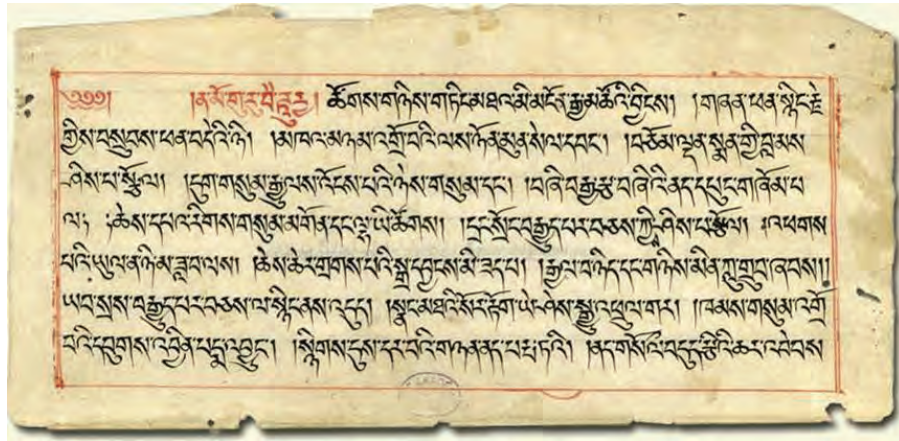 ༄༅༅། །ན་མོ་གུ་རུ་བཻ་ཌཱུརྱ། ཚོགས་གཉིས་གཏིང་མཐའ་མི་མངོན་རྒྱ་མཚོའི་དབྱིངས། །གཞན་ཕན་སྙིང་རྗེ
ཀྱིས་བསྲུབས་ཕན་བདེའི་ཉི། །མཁའ་མཉམ་འགྲོ་བའི་ལས་ཉོན་མུན་སེལ་དབང་། །བཅོམ་ལྡན་སྨན་གྱི་བླ་མས
ཤིས་པ་སྩོལ། །དུག་གསུམ་རྒྱུ་ལས་འོངས་པའི་ཉེས་གསུམ་དང་། །བཞི་བརྒྱ་རྩ་བཞིའི་ནད་དཔུང་གཞོམ་པ
ལ། །ཆེས་དཔའ་རིགས་གསུམ་མགོན་དང་ལྷ་ཡི་ཚོགས། །དྲང་སྲོང་བརྒྱུད་པར་བཅས་ཀྱི་ཤིས་པ་སྩོལ། །འཕགས
པའི་ཡུལ་ན་ཉི་མ་ཟླ་བ་ལས། །ཆེས་ཆེར་གྲགས་པའི་སྒྲ་དབྱངས་མི་ཟད་པ། །རྒྱལ་བ་ཉིད་དང་གཉིས་མིན་ཀླུ་གྲུབ་ཞབས།།
ཡབ་སྲས་བརྒྱུད་པར་བཅས་ལ་སྙིང་ནས་འདུད། །སྣང་མཐའི་སོར་རྟོག་ཡེ་ཤེས་སྒྱུ་འཕྲུལ་གར། །ཁམས་གསུམ་འགྲོ
བའི་དབུགས་འབྱིན་པདྨ་འབྱུང་། །སྙིགས་དུས་དར་བའི་གཉན་ནད་པརྤ་ཏའི། །ནད་གསོའི་བདུད་རྩིའི་ཆར་འབེབས